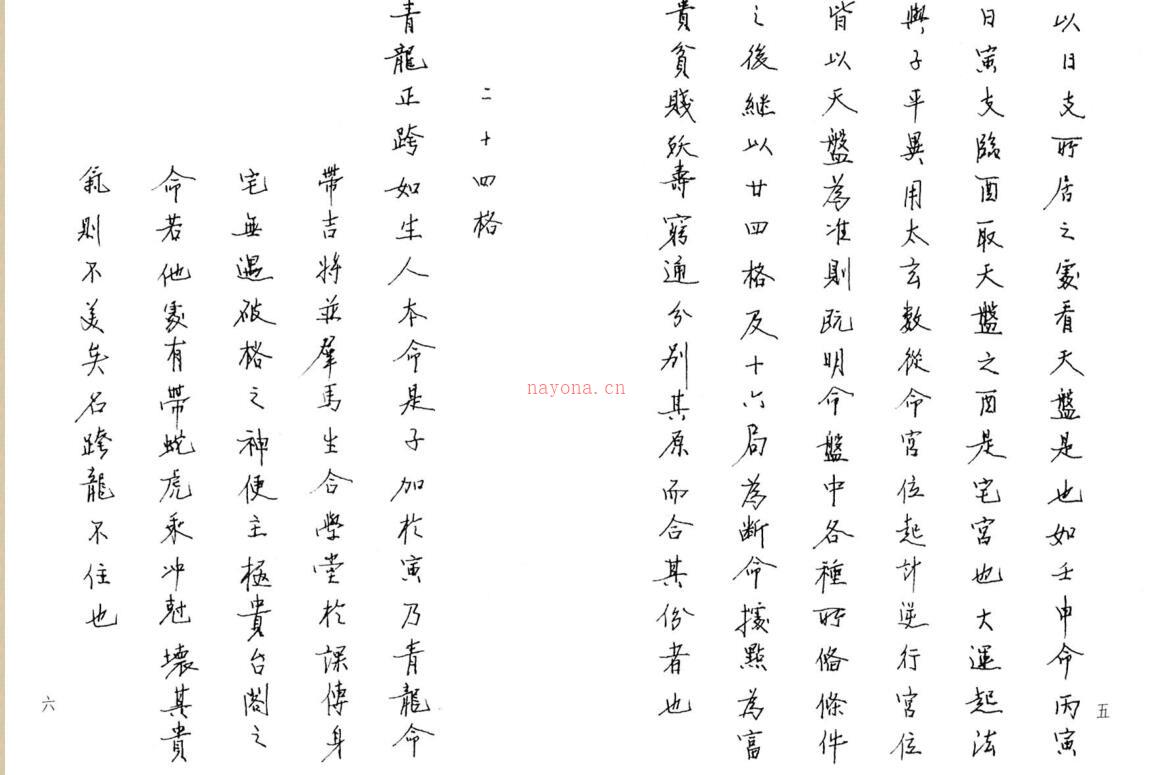 以日支所居之處看天盤是也如壬申命丙寅
日寅支臨酉取天盤之酉是宅宮也大運起法
與子平異用太玄數從命宮位起計逆行宮位
皆以天盤為准則既明命盤中各種所俻條件
之後継以廿四格及十六局為断命據點為富
貴貧賤殀壽窮通分别其原而合其份者也
五
二十四格
青龍正跨如生人本命是子加於寅乃青龍命
帶吉將並羣馬生合學堂於課傳身
宅無遇破格之神便主極貴台閣之
命若他處有帶蛇虎乘冲尅壞其貴
氣則不美矣名跨龍不住也
六
nayona.cn